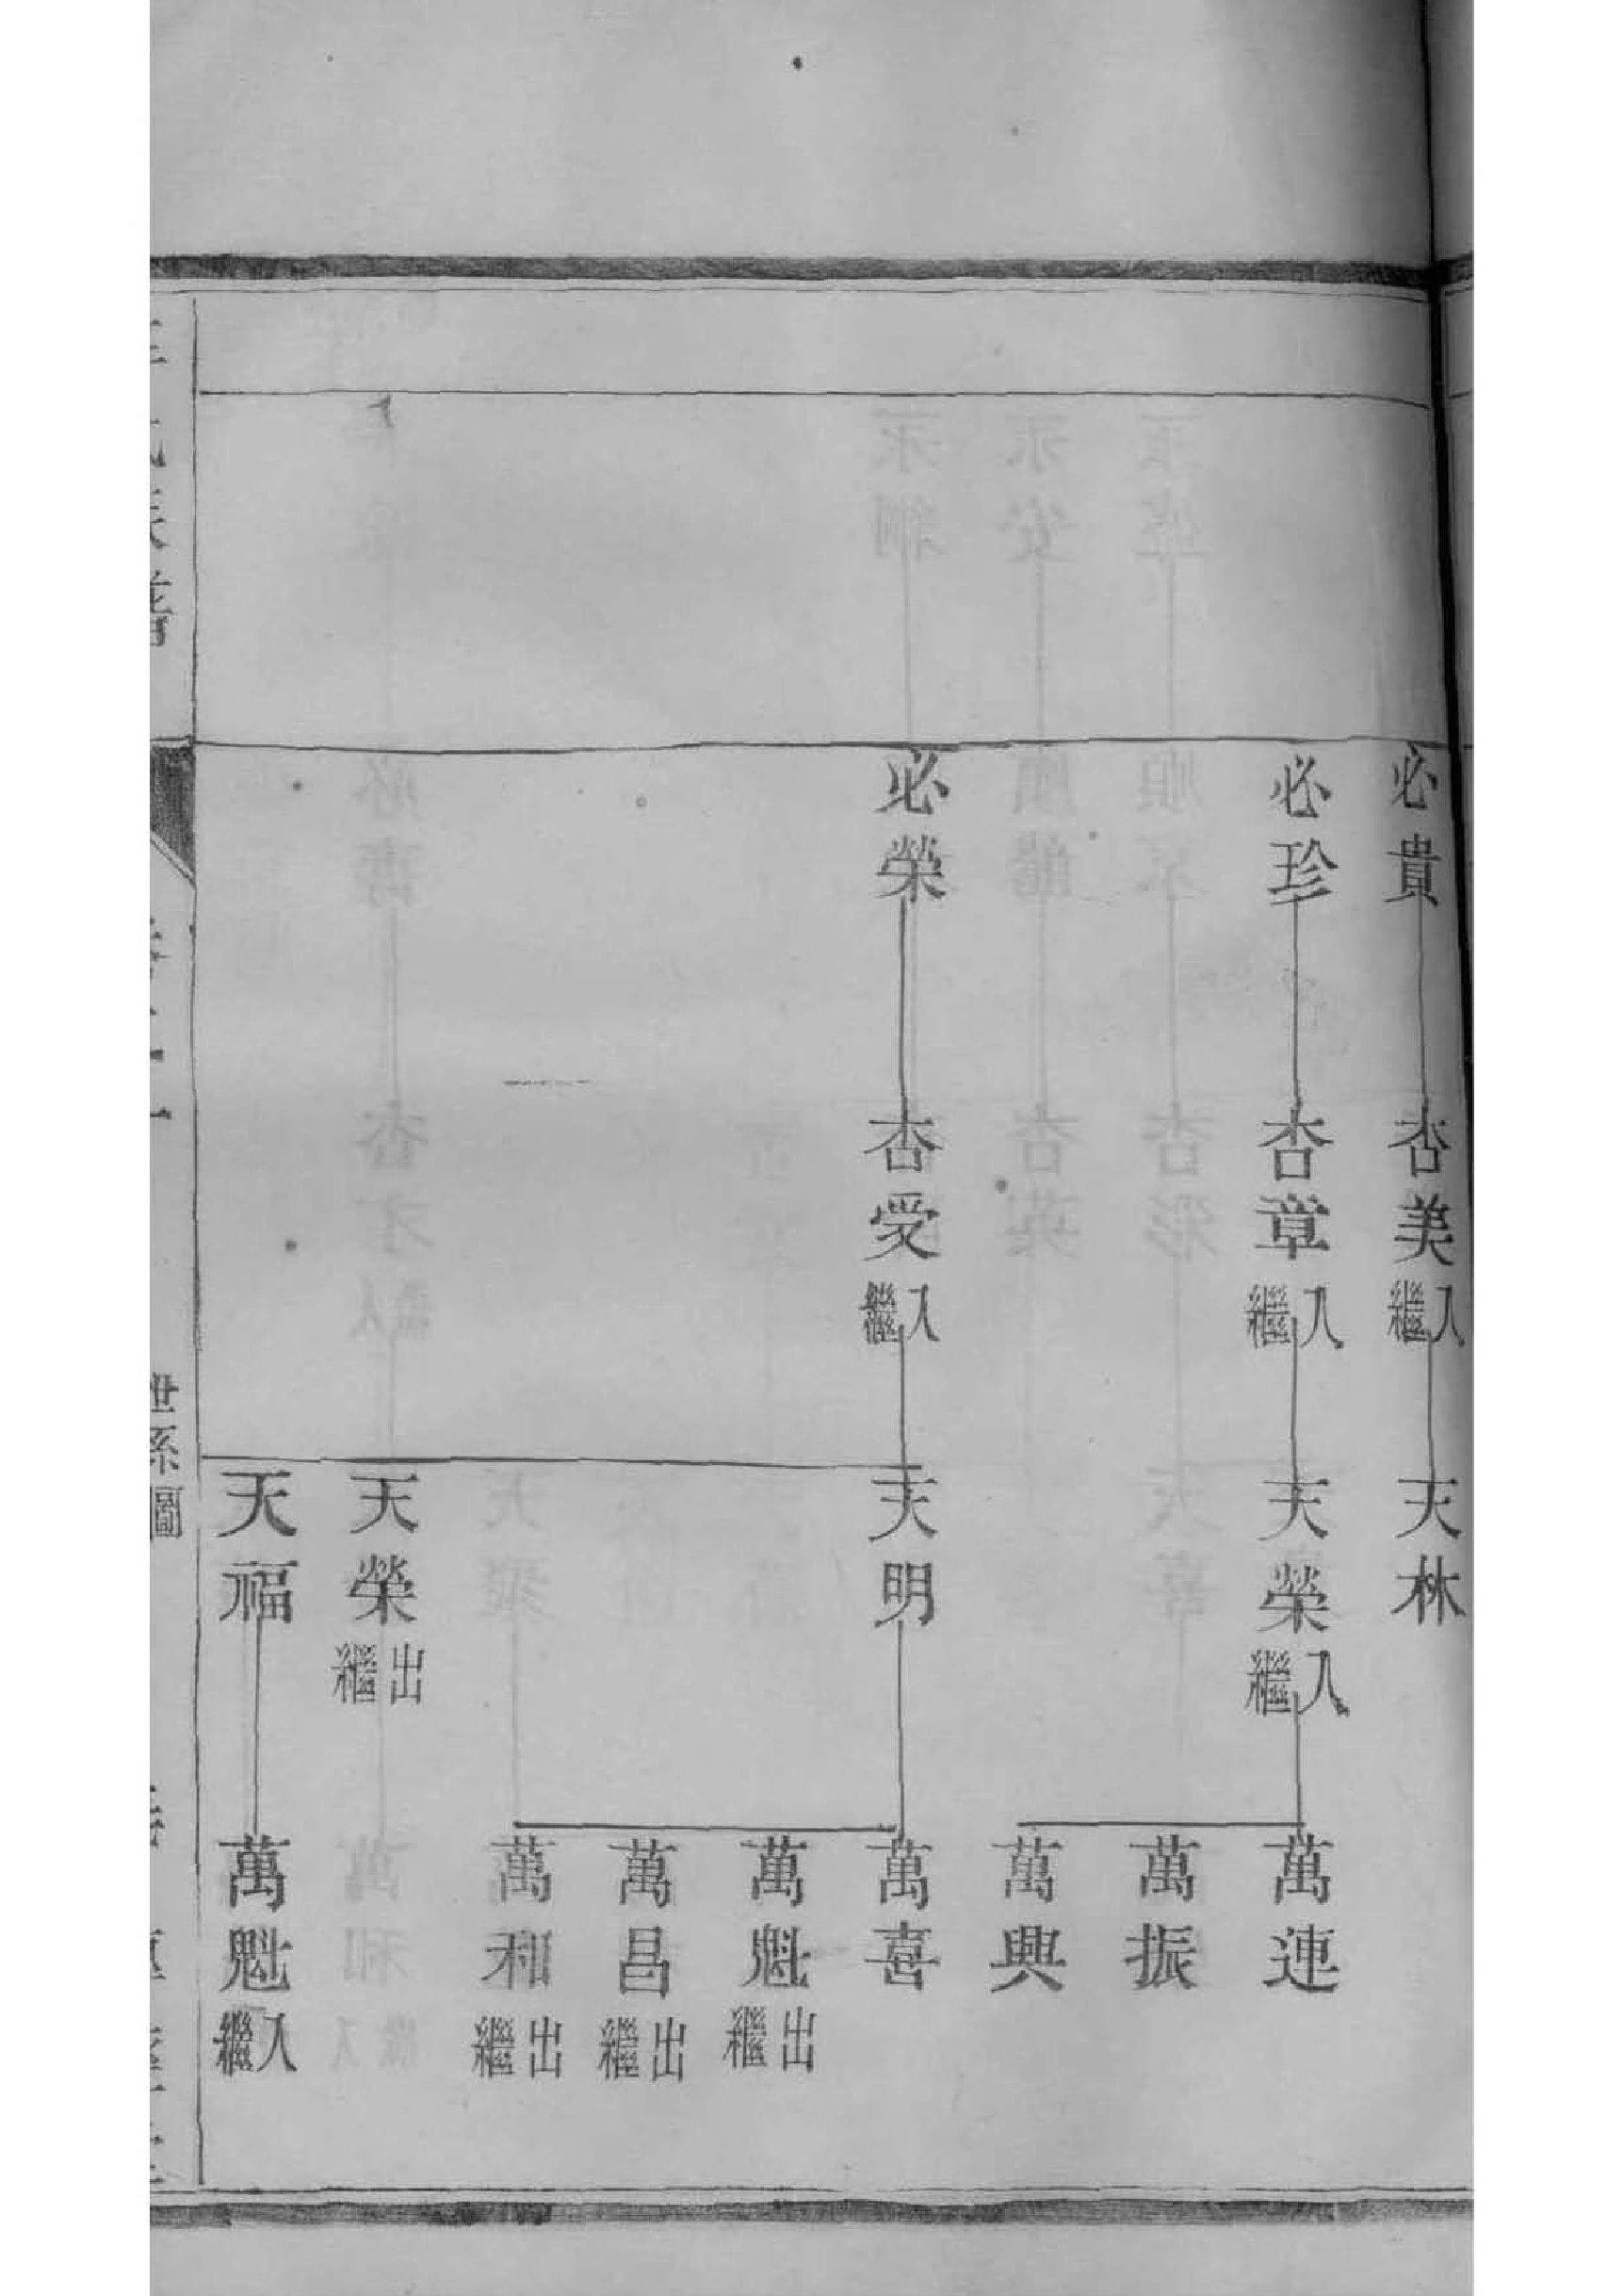 必貴
杏美入繼
天林
必珍
杏章入繼
天榮入繼
萬連
萬振
萬興
必榮
杏受入繼
天明
萬喜
萬魁出繼
萬昌出繼
萬和出繼
天榮出繼
天福
萬魁入繼
世系圖